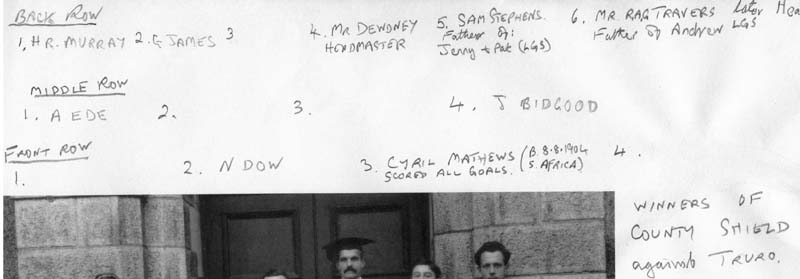 BACK ROW
1. H R. MURRAY 2. G JAMES 3
4. MR DEWDNEY
HEADMASTER
5. SAM STEPHENS.
Father of:
Jenny + Pat (LGS)
6. MR. RAG TRAVERS later Hea
Father of Andrew LGS
MIDDLE ROW
1. A EDE 2. 3. 4. J BIDGOOD
FRONT ROW
1. 2. N DOW 3. CYRIL MATHEWS (B. 8.8.1904
SCORED ALL GOALS. S. AFRICA) 4.
WINNERS OF
COUNTY SHIELD
against TRURO.